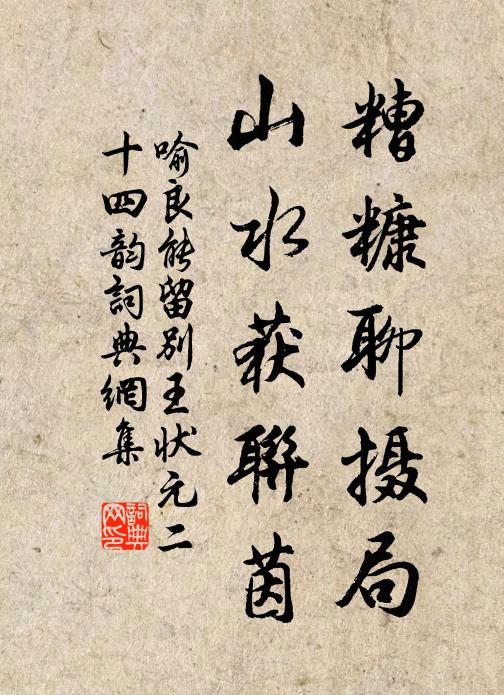 糟糠聊摄局
山水获聯茵
喻良能留别王状元二
十四韵詞典網集
詞典
网印